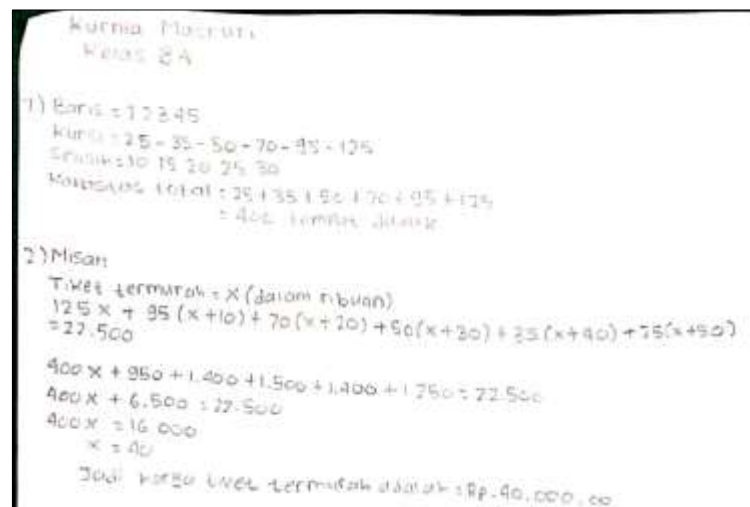 Kurnia Masruri
Kelas 8A
1) Baris = 1 2 3 4 5
Kursi = 25 - 35 - 50 - 70 - 95 - 125
Selisih = 10 15 20 25 30
Kapasitas total = 25 + 35 + 50 + 70 + 95 + 125
= 400 tempat duduk
2) Misan
Tiket termurah = X (dalam ribuan)
125 x + 95 (x+10) + 70 (x+20) + 50 (x+30) + 35 (x+40) + 25 (x+50)
= 22.500
400 x + 950 + 1.400 + 1.500 + 1.400 + 1.250 = 22.500
400 x + 6.500 = 22.500
400 x = 16 000
x = 40
Jadi harga tiket termurah adalah = Rp. 40.000,00